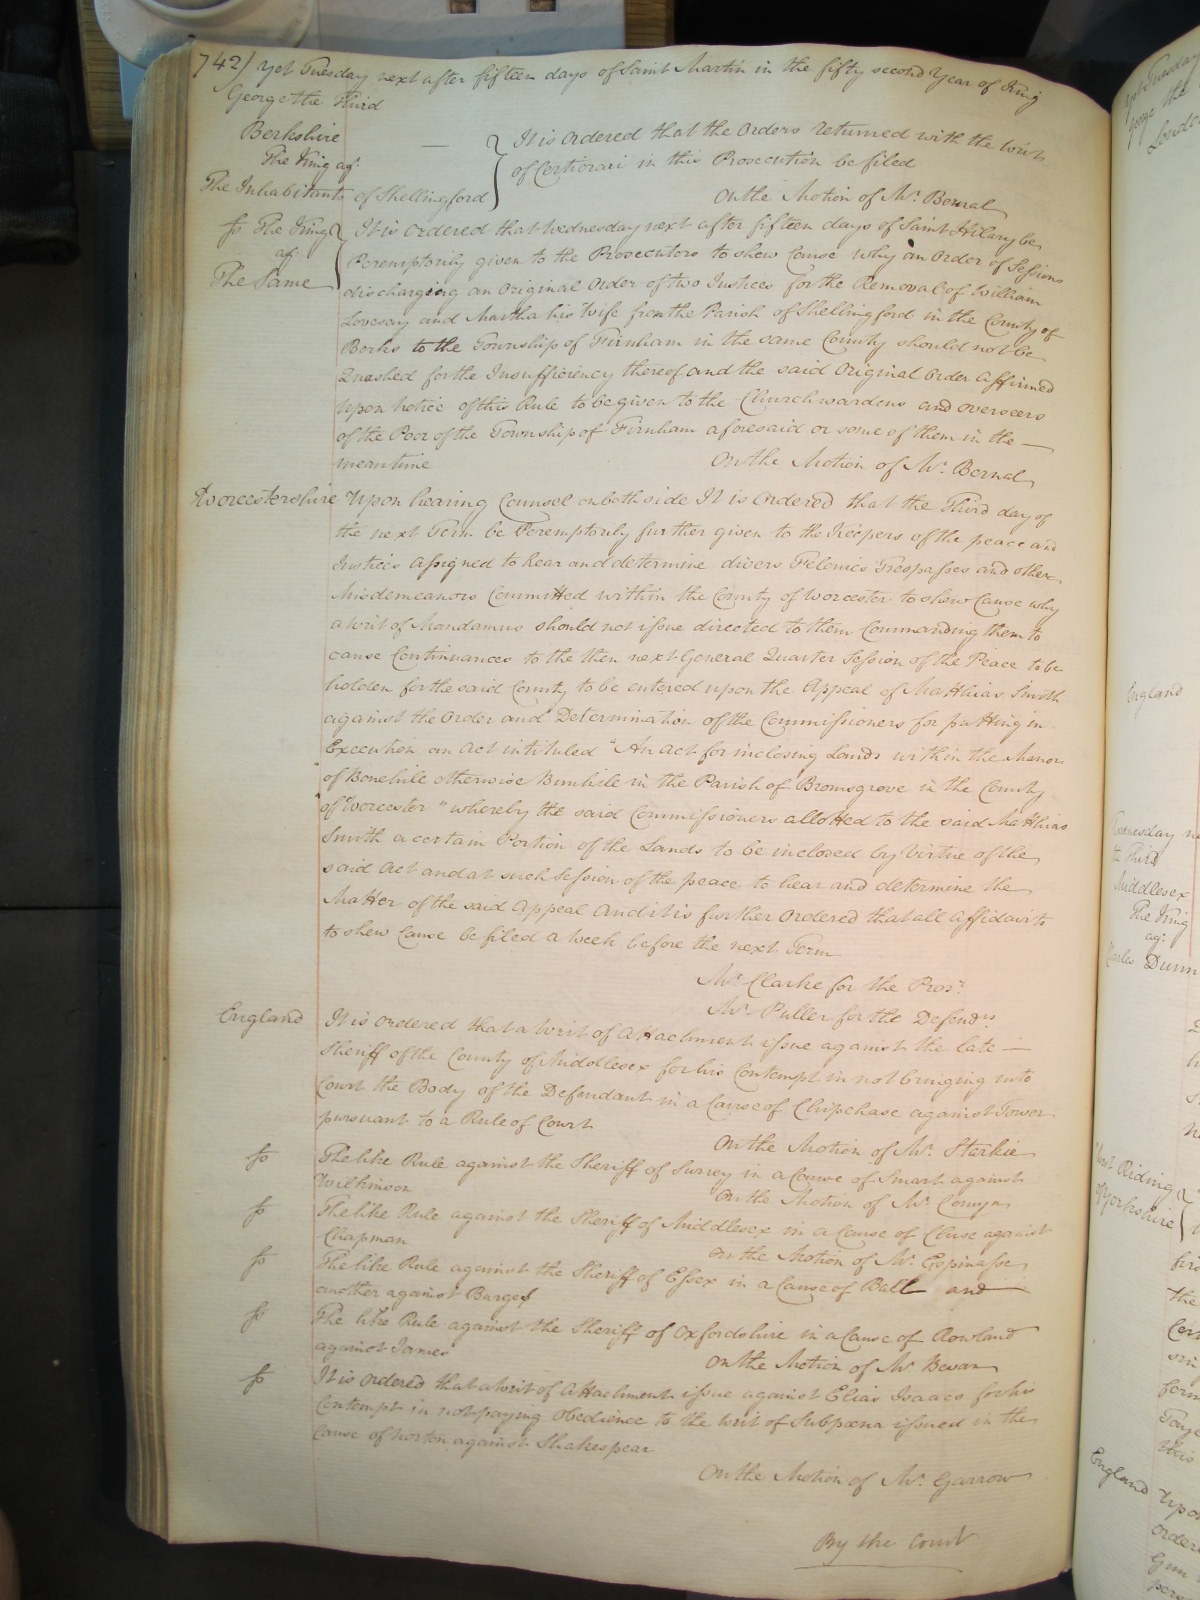 742/ Yet Tuesday next after fifteen days of Saint Martin in the fifty second Year of King
George the Third
Berkshire
The King agt.
The Inhabitants of Shellingford
It is ordered that the Orders returned with the writ
of Certiorari in this Prosecution be filed
On the Motion of Mr. Bernal
So The King
agt.
The Same
It is ordered that Wednesday next after fifteen days of Saint Hilary be
Peremptorily given to the Prosecutors to shew Cause Why an Order of Sessions
discharging an Original Order of two Justices for the Removal of William
Lovesay and Martha his Wife from the Parish of Shellingford in the County of
Berks to the Township of Firnham in the same County should not be
Quashed for the Insufficiency thereof and the said Original Order Affirmed
Upon Notice of this Rule to be given to the Churchwardens and Overseers
of the Poor of the Township of Firnham aforesaid or some of them in the
meantime
On the Motion of Mr. Bernal
Worcestershire
Upon hearing Counsel on both side It is Ordered that the Third day of
the next Term be Peremptorily further given to the Keepers of the peace and
Justices Assigned to hear and determine divers Felonies Trespasses and other
Misdemeanors Committed within the County of Worcester to shew Cause why
a Writ of Mandamus should not issue directed to them Commanding them to
cause Continuances to the then next General Quarter Session of the Peace to be
holden for the said County to be entered upon the Appeal of Matthias Smith
against the Order and Determination of the Commissioners for putting in
Execution an Act intituled "An Act for inclosing Lands within the Manor
of Bonehile otherwise Bunhile in the Parish of Bromsgrove in the County
of Worcester" whereby the said Commissioners allotted to the said Matthias
Smith a certain Portion of the Lands to be inclosed by Virtue of the
said Act and at such Session of the peace to hear and determine the
Matter of the said Appeal And it is further Ordered that all Affidavits
to shew Cause be filed a Week before the next Term
Mr. Clarke for the Pros.r
Mr. Puller for the Defend.ts
England
It is Ordered that a Writ of Attachment issue against the late
Sheriff of the County of Middlesex for his Contempt in not bringing into
Court the Body of the Defendant in a Cause of Chipchase against Tower
pursuant to a Rule of Court
On the Motion of Mr. Starkie
So
The like Rule against the Sheriff of Surrey in a Cause of Smart against
Wilkinson
On the Motion of Mr. Comyn
So
The like Rule against the Sheriff of Middlesex in a Cause of Cluse against
Chapman
On the Motion of Mr. Espinasse
So
The like Rule against the Sheriff of Essex in a Cause of Ball and
another against Burges
So
The like Rule against the Sheriff of Oxfordshire in a Cause of Rowland
against James
On the Motion of Mr. Bevan
So
It is Ordered that a Writ of Attachment issue against Elias Isaacs for his
Contempt in not paying Obedience to the Writ of Subpœna issued in the
Cause of Norton against Shakespear
On the Motion of Mr. Garrow
By the Court
Yet Tuesday
George the
London
England
Wednesday
the Third
Middlesex
The King
agt.
Charles Dunn
West Riding
of Yorkshire
the
England
Upon
Ordere